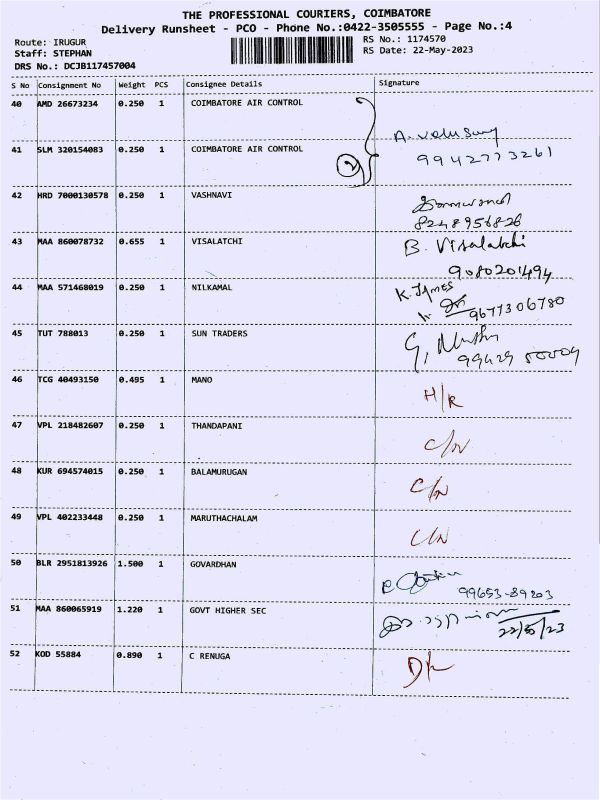 THE PROFESSIONAL COURIERS, COIMBATORE
Delivery Runsheet - PCO - Phone No.:0422-3505555 - Page No.:4
Route: IRUGUR
RS No.: 1174570
Staff: STEPHAN
RS Date: 22-May-2023
DRS No.: DCJB117457004
S No Consignment No Weight PCS Consignee Details Signature
40 AMD 26673234 0.250 1 COIMBATORE AIR CONTROL
41 SLM 320154083 0.250 1 COIMBATORE AIR CONTROL
2
9942773261
42 HRD 7000130578 0.250 1 VASHNAVI
8248956826
43 MAA 860078732 0.655 1 VISALATCHI B. Visalatchi
9080201494
44 MAA 571468019 0.250 1 NILKAMAL K. James
9677306780
45 TUT 788013 0.250 1 SUN TRADERS
99429
46 TCG 40493150 0.495 1 MANO H/R
47 VPL 218482607 0.250 1 THANDAPANI C/N
48 KUR 694574015 0.250 1 BALAMURUGAN C/N
49 VPL 402233448 0.250 1 MARUTHACHALAM C/N
50 BLR 2951813926 1.500 1 GOVARDHAN
99653-89203
51 MAA 860065919 1.220 1 GOVT HIGHER SEC
22/5/23
52 KOD 55884 0.890 1 C RENUGA D/L